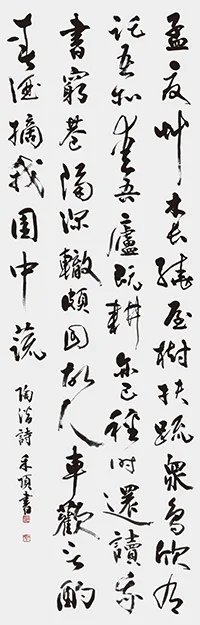 孟夏艸木長繞屋樹扶疏衆鳥欣有
託吾亦愛吾廬既耕亦已種時還讀我
書窮巷隔深轍頗回故人車歡言酌
春酒摘我園中蔬
陶潛詩 禾頂書